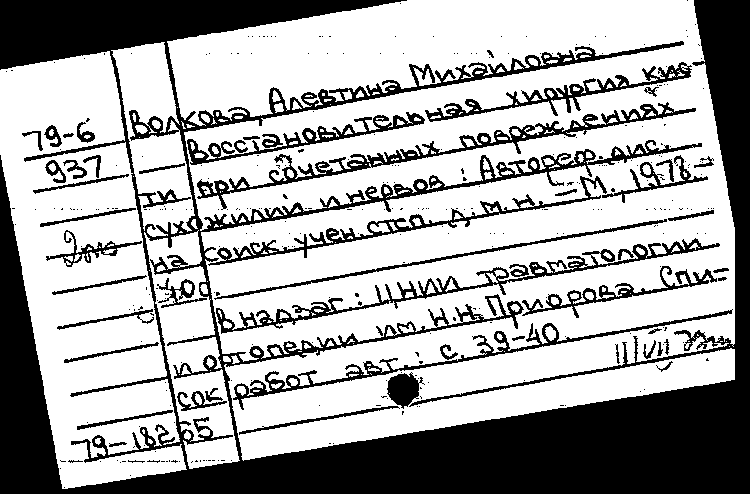 Волкова, Алевтина Михайловна
79-6
937
Восстановительная хирургия кис-
ти при сочетанных повреждениях
сухожилий и нервов : Автореф. дис.
на соиск. учен. степ. д. м. н. - М., 1978. -
40 с.
В надзаг.: ЦНИИ травматологии
и ортопедии им. Н.Н. Приорова. Спи-
сок работ авт.: с. 39-40.
79-18265